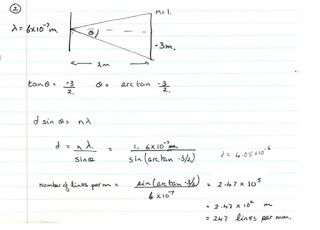 ②
n=1.
λ = 6×10⁻⁷ m
θ
·3m.
2m
tanθ = ·3/2. θ = arc tan ·3/2.
d sin θ = nλ
d = nλ/sinθ = 1. 6×10⁻⁷ m/sin(arc tan ·3/2) d = 4.05×10⁻⁶
number of lines per m = sin(arc tan ·3/2)/6×10⁻⁷ = 2.47×10⁵
= 2.47×10² m
= 247 lines per mm.